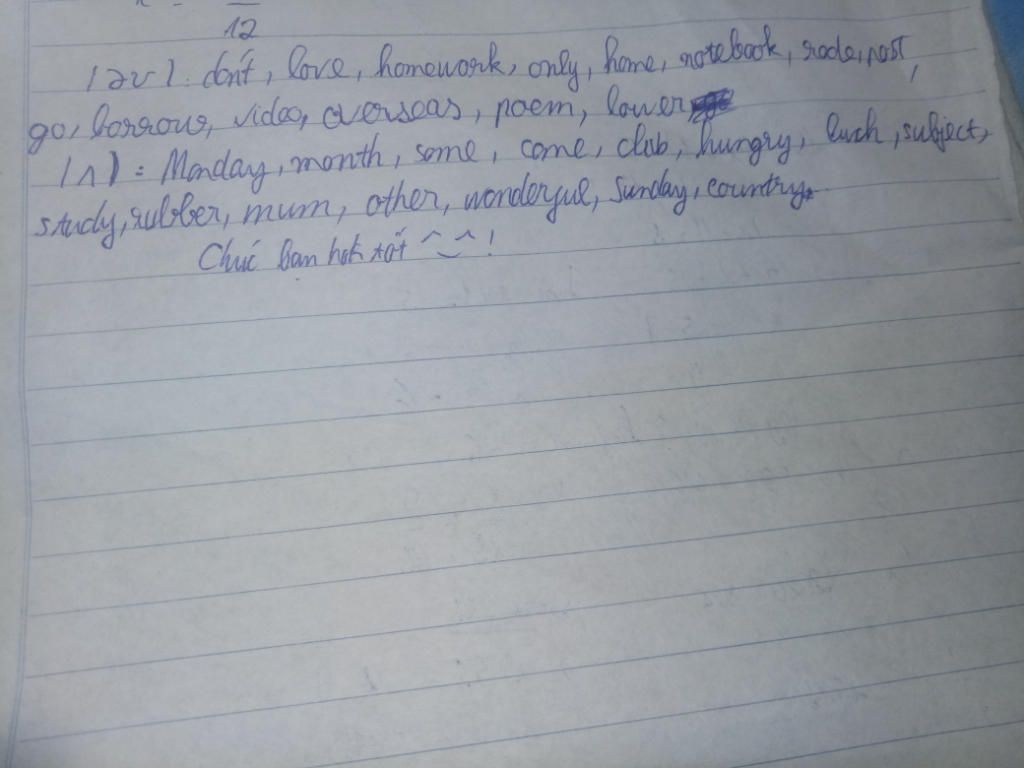 12
/əʊ/: don't, love, homework, only, home, notebook, rode, post,
go, borrow, video, overseas, poem, lower
/ʌ/: Monday, month, some, come, club, hungry, luch, subject,
study, rubber, mum, other, wonderful, Sunday, country.
Chúc bạn hok tốt ^_^!